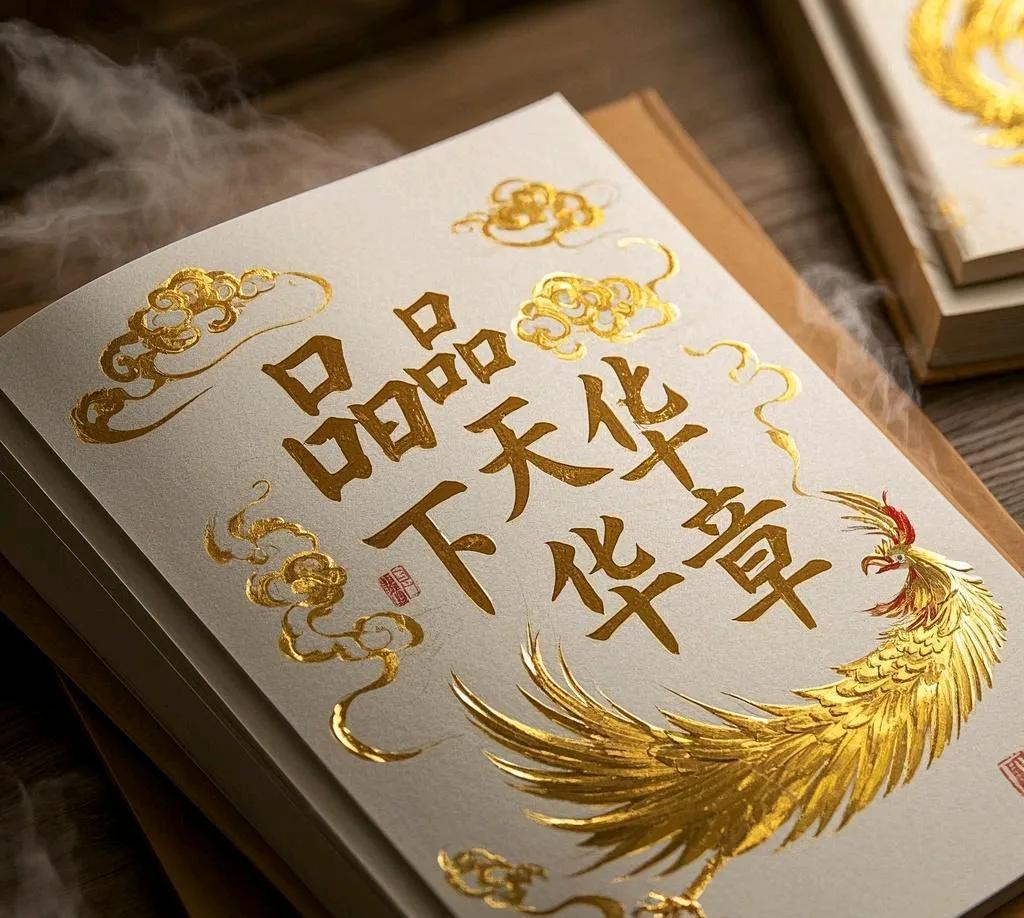 品品
下天华
华章